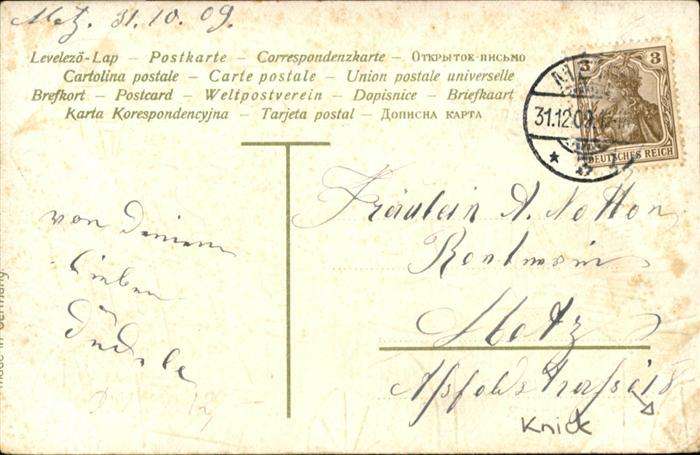 Metz, 31.10.09.
Levelező-Lap – Postkarte – Correspondenzkarte – Открыток-письмо
Cartolina postale – Carte postale – Union postale universelle
Brefkort – Postcard – Weltpostverein – Dopisnice – Briefkaart
Karta Korespondencyjna – Tarjeta postal – Дописна карта
3 3
31.12.09.
DEUTSCHES REICH
von Deinem
lieben
Fräulein A.
Metz
18
Knick
Made in Germany